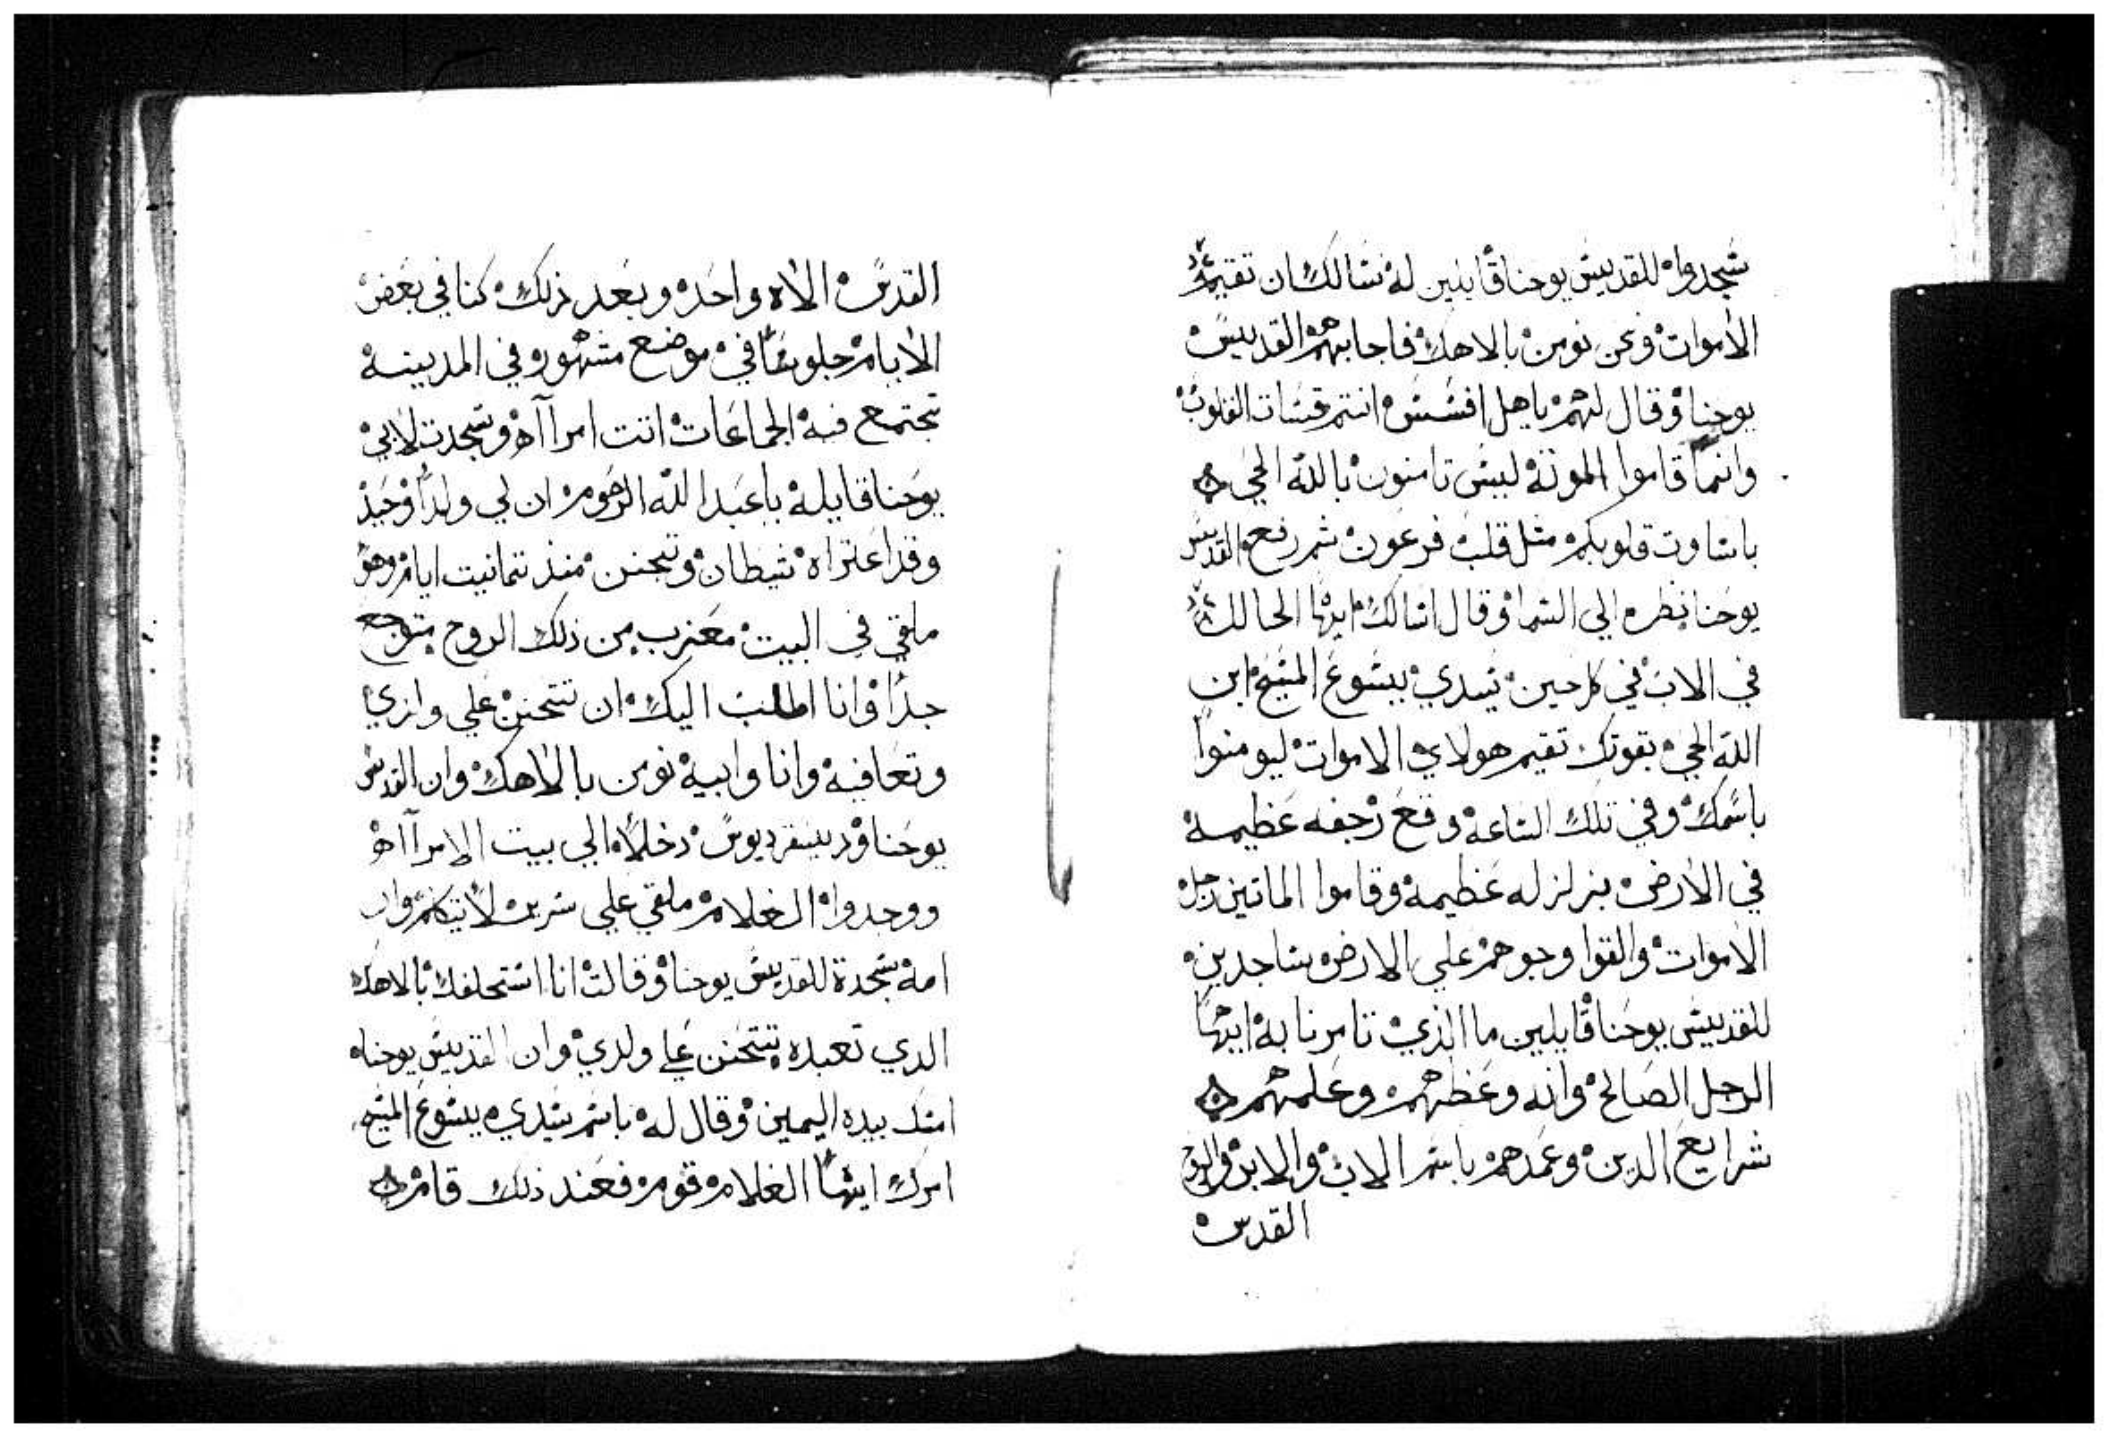 سجدوا للقديس يوحنا قايلين له نسالك ان تقيم
الاموات ونحن نومن بالاهك فاجابهم القديس
يوحنا وقال لهم ياهل افسس انتم قسات القلوب
وانما قاموا الموتة ليس تامنون بالله الحي
باساوت قلوبكم مثل قلب فرعون ثم رفع القديس
يوحنا نظره الي السما وقال اسالك ايها الحال
في الاب في كل حين سيدي يسوع المسيح ابن
الله الحي بقوتك تقيم هولاي الاموات ليومنوا
باسمك وفي تلك الساعة وقع رجفه عظيمة
في الارض بزلزله عظيمة وقاموا الماتين رجل
الاموات والقوا وجوههم علي الارض ساجدين
للقديس يوحنا قايلين ما الذي تامرنا به ايها
الرجل الصالح وانه وعظهم وعلمهم
شرايع الدين وعمدهم باسم الاب والابن والروح
القدس
القدس الاه واحد وبعد ذلك كنا في بعض
الايام جلوسا في موضع مشهور في المدينة
تجتمع فيه الجماعات اتت امراآه وسجدت لابي
يوحنا قايلة ياعبد الله الرحوم ان لي ولدا وحيد
وقد اعتراه شيطان وتجنن منذ تمانيت ايام وهو
ملقي في البيت معذب من ذلك الروح متوجع
جدا وانا اطلب اليك ان تتحنن علي ولدي
وتعافيه وانا وابيه نومن بالاهك وان القديس
يوحنا ودبسقرديوس دخلاه الي بيت الامراآه
ووجدوا الغلام ملقي علي سرير لا يتكلم وان
امه سجدة للقديس يوحنا وقالت انا استحلفك بالاهك
الدي تعبده تتحنن علي ولدي وان القديس يوحنا
امسك بيده اليمين وقال له باسم سيدي يسوع المسيح
امرك ايها الغلام قوم فعند ذلك قام